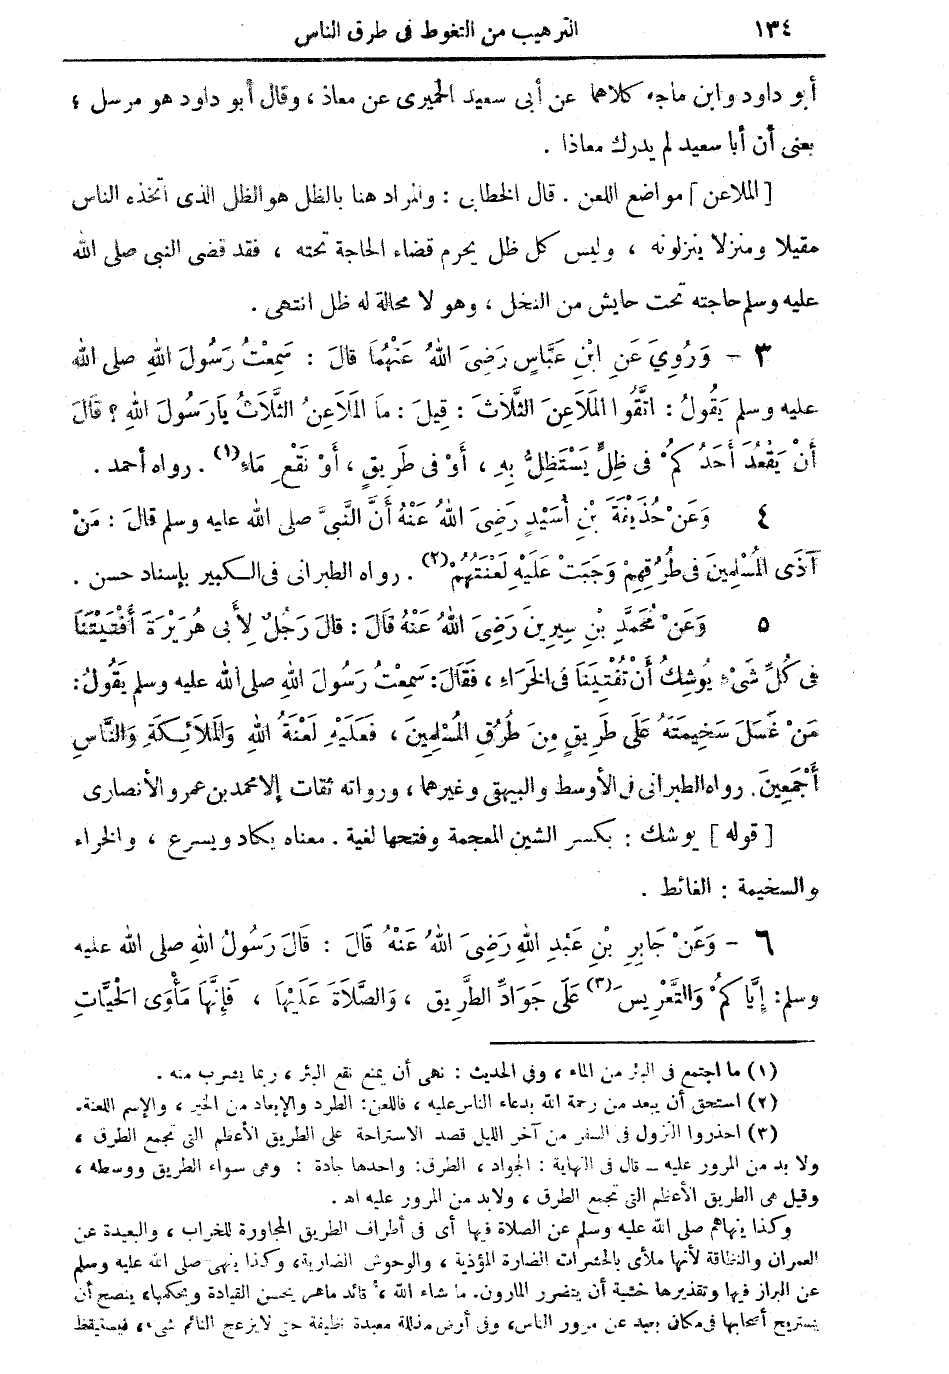 ١٣٤ الترهيب من التغوط فى طرق الناس
أبو داود وابن ماجه كلاهما عن أبى سعيد الحميرى عن معاذ ، وقال أبو داود هو مرسل ؛
يعنى أن أبا سعيد لم يدرك معاذا .
[ الملاعن ] مواضع اللعن . قال الخطابى : والمراد هنا بالظل هو الظل الذى اتخذه الناس
مقيلا ومنزلا ينزلونه ، وليس كل ظل يحرم قضاء الحاجة تحته ، فقد قضى النبى صلى الله
عليه وسلم حاجته تحت حايش من النخل ، وهو لا محالة له ظل انتهى .
٣ – وَرُوِيَ عَنِ ابْنِ عَبَّاسٍ رَضِىَ اللهُ عَنْهُمَا قالَ : سَمِعْتُ رَسُولَ اللهِ صلى الله
عليه وسلم يَقُولُ : اتَّقُوا المَلَاعِنَ الثَّلَاثَ : قِيلَ : مَا المَلَاعِنُ الثَّلَاثُ يَارَسُولَ اللهِ ؟ قَالَ
أَنْ يَقْعُدَ أَحَدُكُمْ فى ظِلٍّ يَسْتَظِلُّ بِهِ ، أَوْ فى طَرِيقٍ ، أَوْ نَقْعِ مَاءٍ(١) . رواه أحمد .
٤ وَعَنْ حُذَيْفَةَ بْنِ أَسِيدٍ رَضِىَ اللهُ عَنْهُ أَنَّ النَّبِىَّ صلى الله عليه وسلم قالَ : مَنْ
آذَى المُسْلِمِينَ فى طُرُقِهِمْ وَجَبَتْ عَلَيْهِ لَعْنَتُهُمْ(٢) . رواه الطبرانى فى الكبير بإسناد حسن .
٥ وَعَنْ مُحَمَّدِ بْنِ سِيرِينَ رَضِىَ اللهُ عَنْهُ قَالَ : قالَ رَجُلٌ لِأَبى هُرَيْرَةَ أَفْتَيْتَنَا
فى كُلِّ شَىْءٍ يُوشِكُ أَنْ تُفْتِيَنَا فى الخَرَاءِ ، فَقَالَ: سَمِعْتُ رَسُولَ اللهِ صلى الله عليه وسلم يَقُولُ:
مَنْ غَسَلَ سَخِيمَتَهُ عَلَى طَرِيقٍ مِنْ طُرُقِ المُسْلِمِينَ ، فَعَلَيْهِ لَعْنَةُ اللهِ وَالمَلَائِكَةِ وَالنَّاسِ
أَجْمَعِينَ. رواه الطبرانى فى الأوسط والبيهقى وغيرهما ، ورواته ثقات إلا محمد بن عمرو الأنصارى
[ قوله ] يوشك : بكسر الشين المعجمة وفتحها لغية . معناه يكاد ويسرع ، والخراء
والسخيمة : الغائط .
٦ – وَعَنْ جَابِرِ بْنِ عَبْدِ اللهِ رَضِىَ اللهُ عَنْهُ قَالَ : قَالَ رَسُولُ اللهِ صلى الله عليه
وسلم: إِيَّاكُمْ وَالتَّعْرِيسَ(٣) عَلَى جَوَادِّ الطَّرِيقِ ، وَالصَّلَاةَ عَلَيْهَا ، فَإِنَّهَا مَأْوَى الحَيَّاتِ
(١) ما اجتمع فى البئر من الماء ، وفى الحديث : نهى أن يمنع نقع البئر ، ربما يشرب منه .
(٢) استحق أن يبعد من رحمة الله بدعاء الناس عليه ، فاللعن: الطرد والإبعاد من الخير ، والإسم اللعنة.
(٣) احذروا النزول فى السفر من آخر الليل قصد الاستراحة على الطريق الأعظم التى تجمع الطرق ،
ولا بد من المرور عليه – قال فى النهاية : الجواد ، الطرق: واحدها جادة : وهى سواء الطريق ووسطه ،
وقيل هى الطريق الأعظم التى تجمع الطرق ، ولابد من المرور عليه اهـ .
وكذا ينهاهم صلى الله عليه وسلم عن الصلاة فيها أى فى أطراف الطريق المجاورة للخراب ، والبعيدة عن
العمران والنظافة لأنها ملأى بالحشرات الضارة المؤذية ، والوحوش الضارية، وكذا ينهى صلى الله عليه وسلم
عن البراز فيها وتقذيرها خشية أن يتضرر المارون. ما شاء الله ، قائد ماهر يحسن القيادة ويحكمها، ينصح أن
يستريح أصحابها فى مكان بعيد عن مرور الناس، وفى أرض مذللة معبدة نظيفة حتى لا يزعج النائم شىء ، فيستيقظ